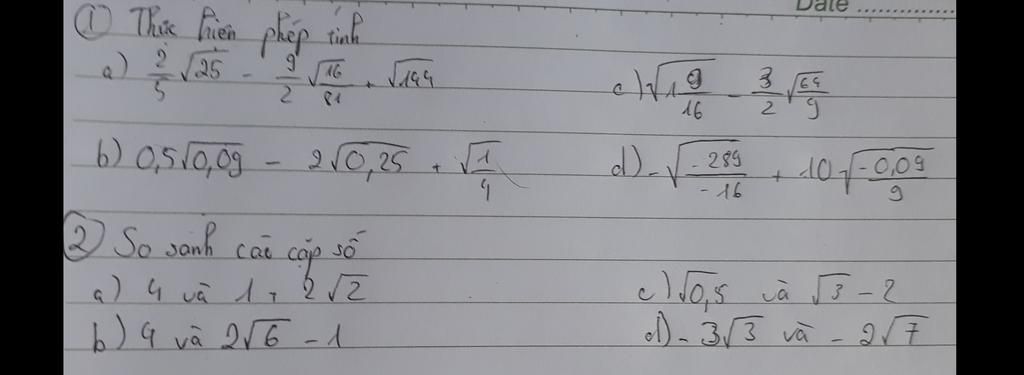 Date ..............
① Thức hiện phép tính
a) 2/5 √25 - 9/2 √(16/81) + √144
c) √(1 9/16) - 3/2 √(64/9)
b) 0,5√0,09 - 2√0,25 + √(1/4)
d) -√(-289/-16) + 10√(-0,09/9)
② So sánh các cặp số
a) 4 và 1 + 2√2
c) √0,5 và √3 - 2
b) 4 và 2√6 - 1
d) -3√3 và -2√7